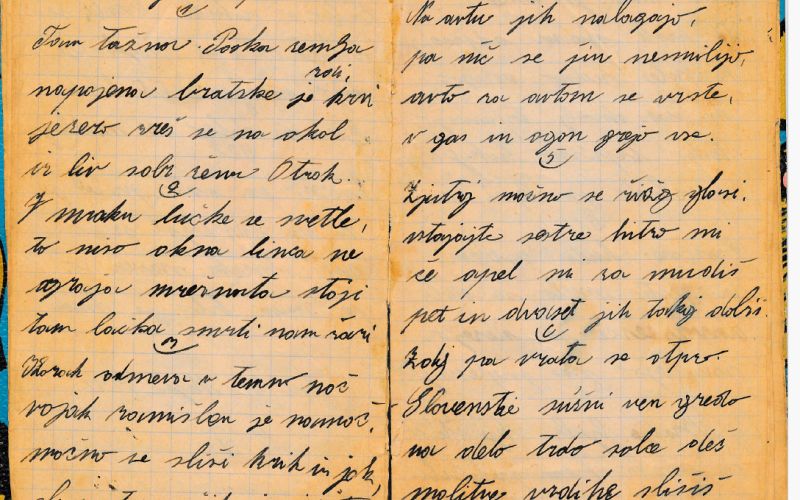 1
Tam tažna. Poska zemlja
napojena bratske je krvi
rosi,
jezero vreš se na okol
in liv solz žena Otrok.
2
V mraku lučke se svetle,
to niso okna linca ne
ograja mrežnata stoji
tam lačka smrti nam žari
3
Korak odmeva v temno noč
vojak zamišlen je na moč,
močno se sliši krik in jok,
Na avtu jih nalagajo,
pa nič se jin nesmilijo,
avto za avtom se vrste,
v gas in ogon grejo vse.
5
Zjutrj močno se žvižg glasi,
vstajajte sestre hitro mi
če apel mi za mudiš
pet in dvajset jih takoj dobiš.
6
Zdej pa vrata se otpro.
Slovenske sužni ven gredo
na delo trdo solze deš
molitve vzdihe slišiš